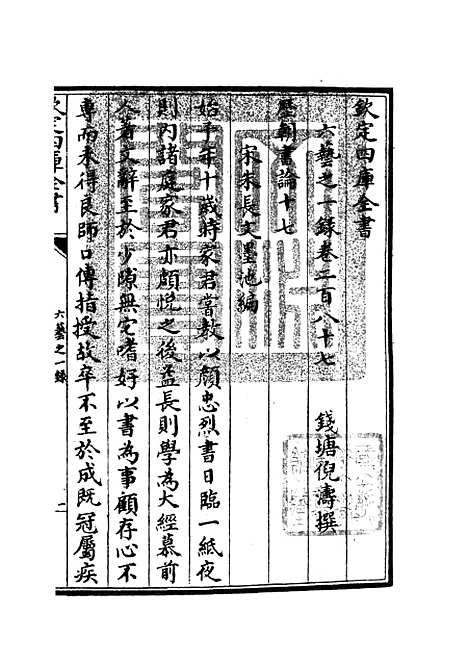 欽定四庫全書
六藝之一録卷二百八十七
錢塘倪濤撰
歷朝書論十七
宋朱長文墨池編
始予年十歲時家君嘗教以顔忠烈書日臨一紙夜
則内諸庭家君亦頗悦之後益長則學為大經慕前
人者文辭至於少隙無它嗜好以書為事顧存心不
專而未得良師口傳指授故卒不至於成既冠屬疾
欽定四庫全書
六藝之一録
二